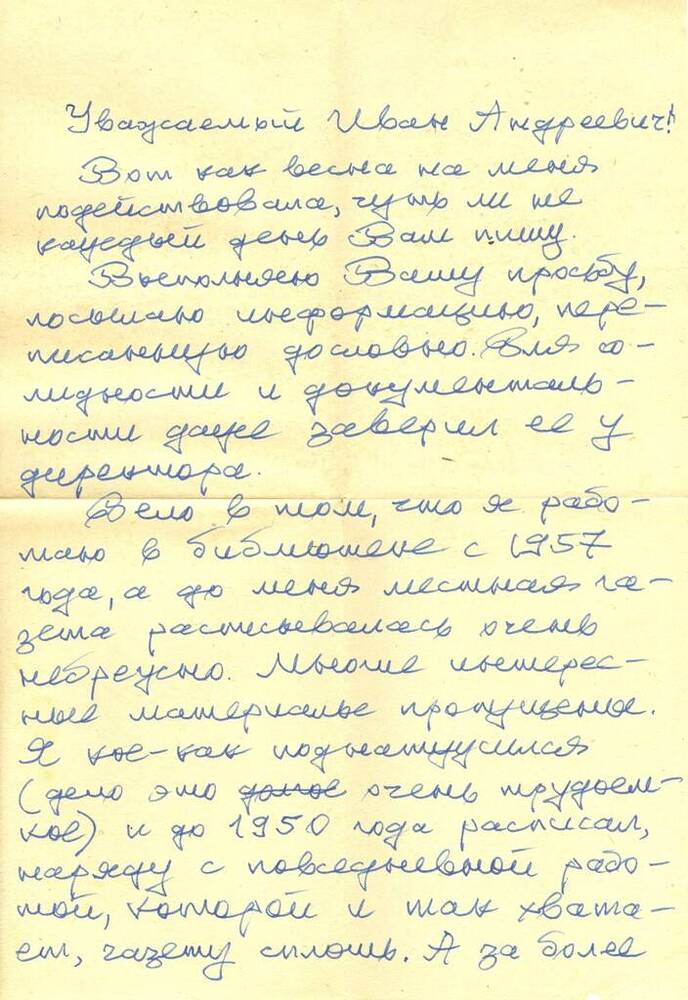 Уважаемый Иван Андреевич!
Вот как весна на меня
подействовала, чуть ли не
каждый день Вам пишу.
Выполняю Вашу просьбу,
посылаю информацию, пере-
писанную дословно. Для со-
лидности и документаль-
ности даже заверил ее у
директора.
Дело в том, что я рабо-
таю в библиотеке с 1957
года, а до меня местная га-
зета расписывалась очень
небрежно. Многие интерес-
ные материалы пропущены.
Я кое-как поднатужился
(дело это очень трудоем-
кое) и до 1950 года расписал,
наряду с повседневной рабо-
той, которой и так хвата-
ет, газету сплошь. А за более